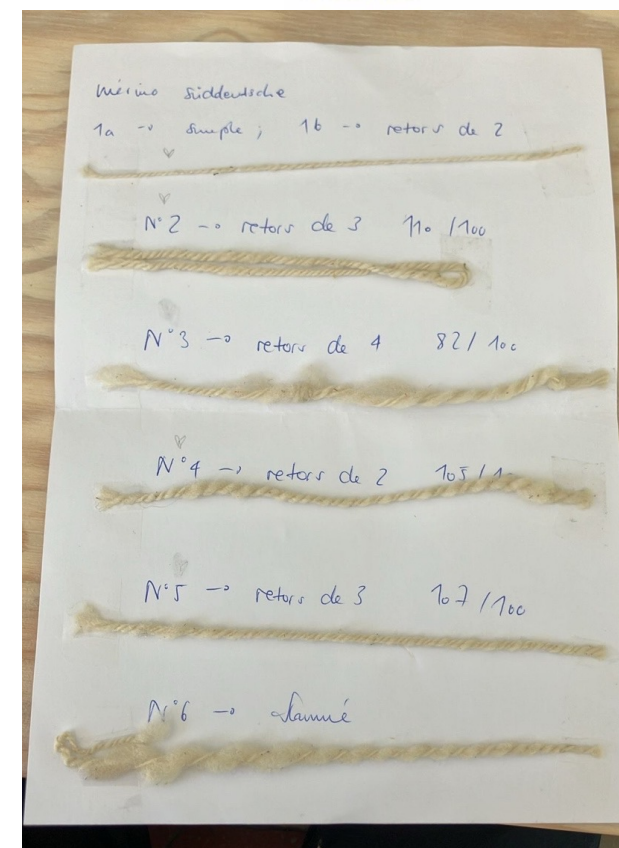 mérino Süddeutsche
1a → simple ; 1b → retors de 2
N°2 → retors de 3 110 /100
N°3 → retors de 4 82 / 100
N°4 → retors de 2 105 / 1
N°5 → retors de 3 107 /100
N°6 → flammé